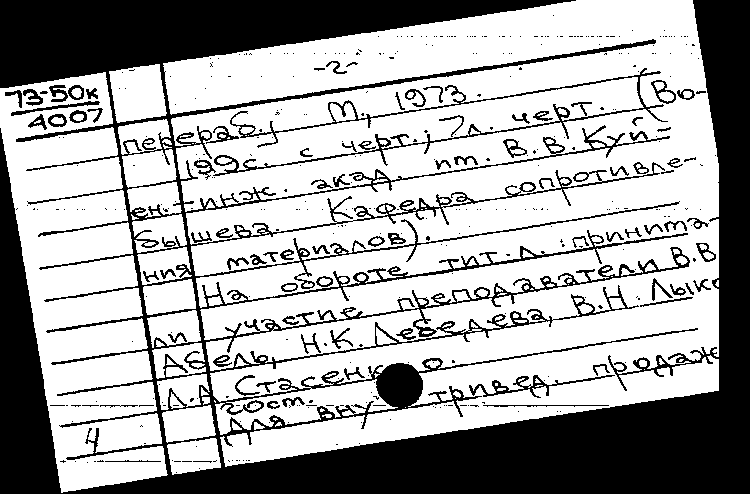 -2-
73-50к
4007
перераб.; М., 1973.
199с. с черт.; 7л. черт. (Во-
ен.-инж. акад. им. В.В. Куй-
бышева. Кафедра сопротивле-
ния материалов).
На обороте тит. л.: принима-
ли участие преподаватели В.В
Абель, Н.К. Лебедева, В.Н. Лыко
Л.А. Стасенко.
20ст.
Для вну тривед. продаж
4